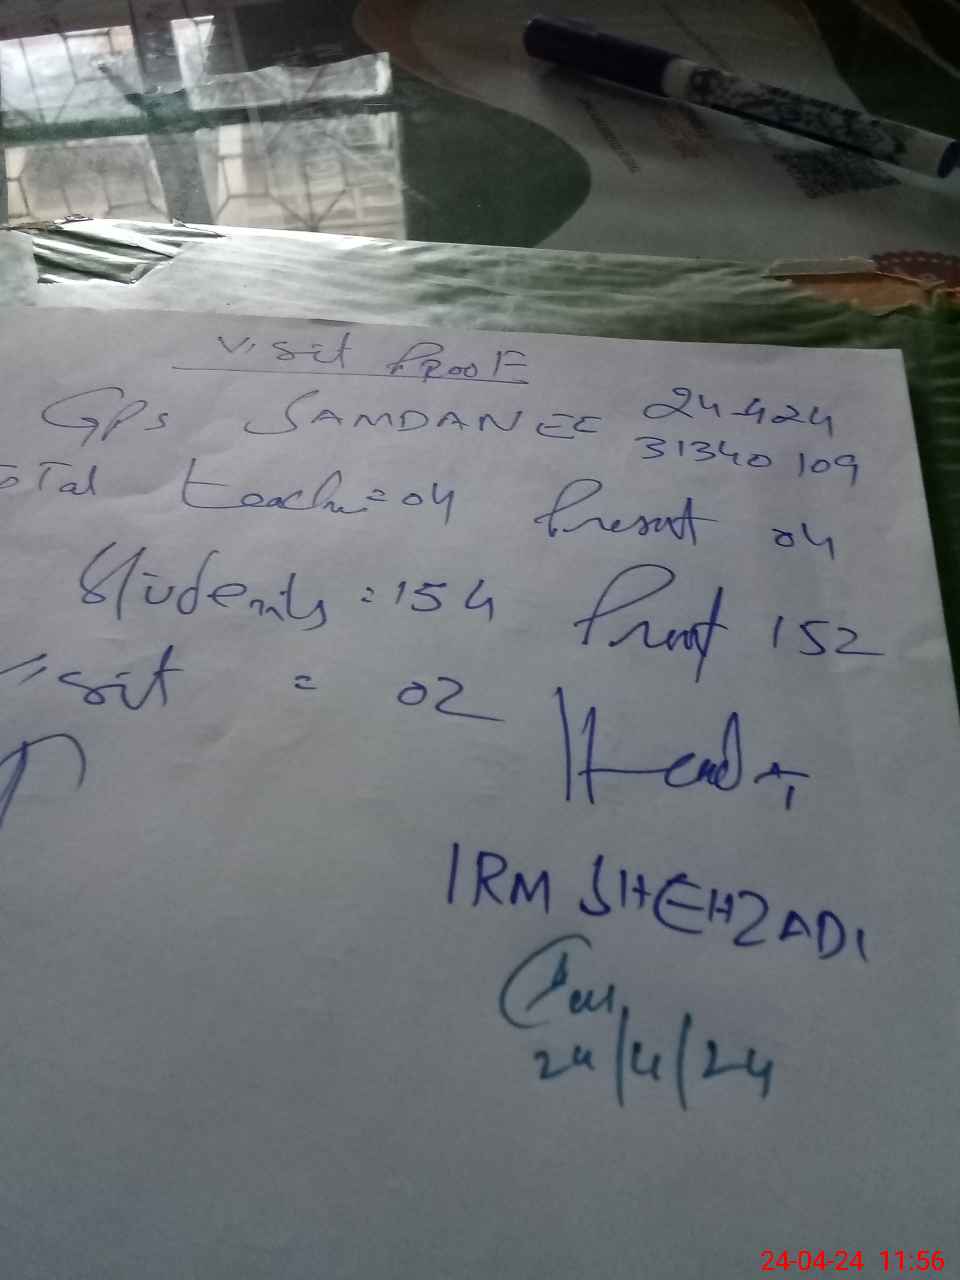 Visit PROOF
GPS SAMDANEE 24-4-24
31340109
Total teacher = 04 Present 04
Students = 154 Present 152
Visit = 02
Head T
IRM SHEHZADI
24/4/24
24-04-24 11:56